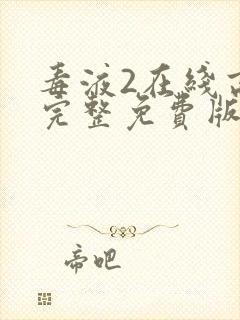 毒液2在线
完整免費版
帝吧